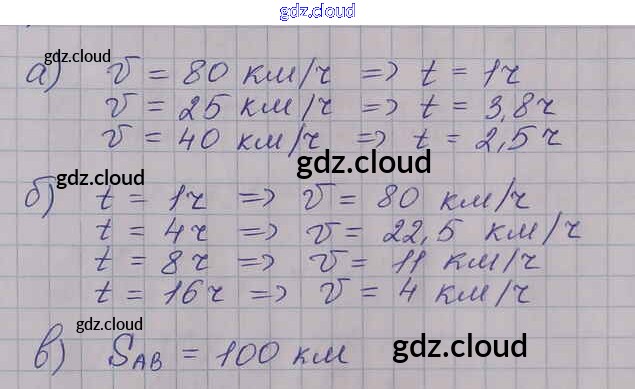 gdz.cloud
gdz.cloud
а) v = 80 км/ч => t = 1ч
v = 25 км/ч => t = 3,8ч
v = 40 км/ч => t = 2,5ч
gdz.cloud
gdz.cloud
б) t = 1ч => v = 80 км/ч
t = 4ч => v = 22,5 км/ч
t = 8ч => v = 11 км/ч
t = 16ч => v = 4 км/ч
gdz.cloud
в) S_AB = 100 км
gdz.cloud